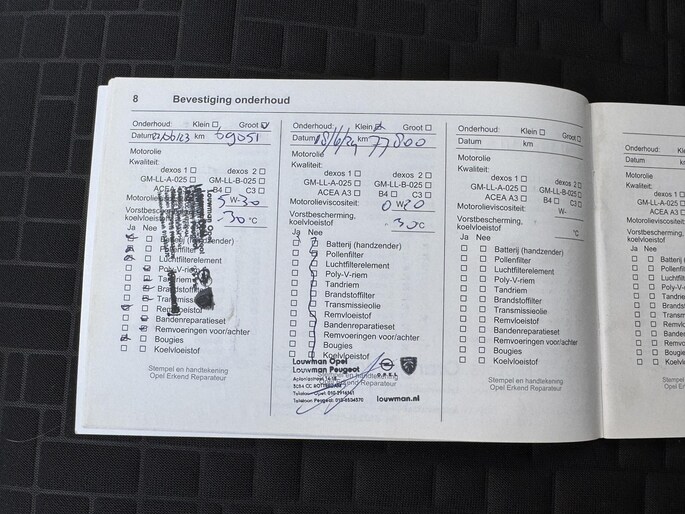 8 Bevestiging onderhoud
Onderhoud: Klein Groot
Datum 22/06/23 km 69051
Motorolie
Kwaliteit:
dexos 1 dexos 2
GM-LL-A-025 GM-LL-B-025
ACEA A3 B4 C3
Motorolieviscositeit: 5 W-30
Vorstbescherming, koelvloeistof -30 °C
Ja Nee
Batterij (handzender)
Pollenfilter
Luchtfilterelement
Poly-V-riem
Tandriem
Brandstoffilter
Transmissieolie
Remvloeistof
Bandenreparatieset
Remvoeringen voor/achter
Bougies
Koelvloeistof
Stempel en handtekening
Opel Erkend Reparateur
Onderhoud: Klein Groot
Datum 18/6/24 km 77800
Motorolie
Kwaliteit:
dexos 1 dexos 2
GM-LL-A-025 GM-LL-B-025
ACEA A3 B4 C3
Motorolieviscositeit: 0 W 20
Vorstbescherming,
koelvloeistof -30C
Ja Nee
Batterij (handzender)
Pollenfilter
Luchtfilterelement
Poly-V-riem
Tandriem
Brandstoffilter
Transmissieolie
Remvloeistof
Bandenreparatieset
Remvoeringen voor/achter
Bougies
Koelvloeistof
Louwman Opel
Louwman Peugeot
OPEL
louwman.nl
Onderhoud: Klein Groot
Datum km
Motorolie
Kwaliteit:
dexos 1 dexos 2
GM-LL-A-025 GM-LL-B-025
ACEA A3 B4 C3
Motorolieviscositeit: W-
Vorstbescherming,
koelvloeistof °C
Ja Nee
Batterij (handzender)
Pollenfilter
Luchtfilterelement
Poly-V-riem
Tandriem
Brandstoffilter
Transmissieolie
Remvloeistof
Bandenreparatieset
Remvoeringen voor/achter
Bougies
Koelvloeistof
Stempel en handtekening
Opel Erkend Reparateur
Onderhoud:
Datum
Motorolie
Kwaliteit:
GM-LL-A-025
ACEA A3
Motorolieviscositeit
Vorstbescherming,
koelvloeistof
Ja Nee